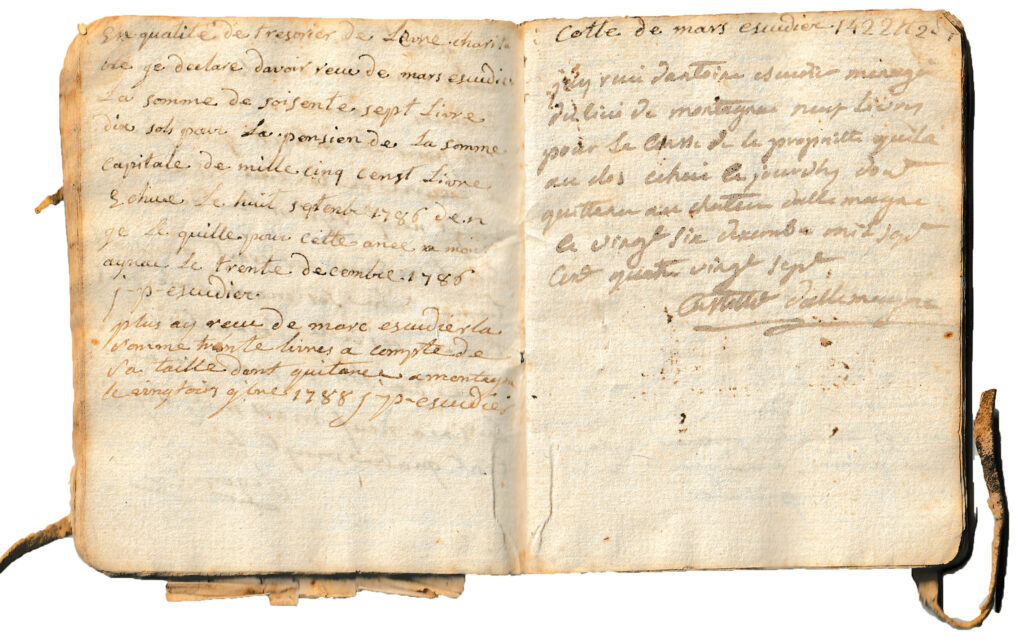 En qualité de tresorier de Livre charita
ble ge declare davoir reeu de mars escudier
La somme de soisente sept Livre
dix sols pour La pension de La somme
capitale de mille cinq censt Livre
Echue Le huit septenbe 1786 den
ge Le quille pour cette anée a mon
aynac Le trente decembre 1786
j-p-escudier.
plus ay reeu de marc escudier la
somme trente livres a compte de
sa taille dont quitance a montagn
le vingtrois 1788 j p-escudier
Cotte de mars escudier 1422
jay reeu dantoine escudier menagé
du lieu de montagnac neuf livres
pour la de la proprietté quil a
au clos echeu le jourdhy dont
quittance au chateau dallemagne
le vingt six decembre mil sept
cent quatre vingt sept
dallemagne